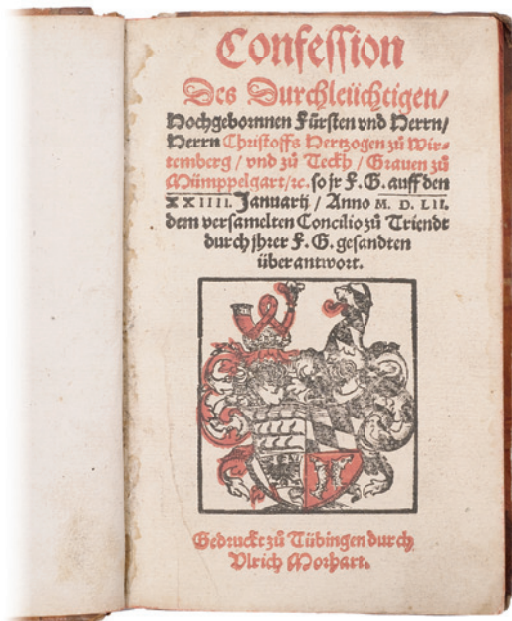 Confession
Des Durchleüchtigen/
Hochgebornnen Fürsten vnd Herrn/
Herrn Christoffs Hertzogen zů Wir-
temberg / vnd zů Teckh / Grauen zů
Mümppelgart/ꝛc. so jr F. G. auff den
XXIIII. Januarij / Anno M. D. LII.
dem versamelten Concilio zů Triendt
durch jhrer F. G. gesandten
überantwort.
Gedruckt zů Tübingen durch
Vlrich Morhart.